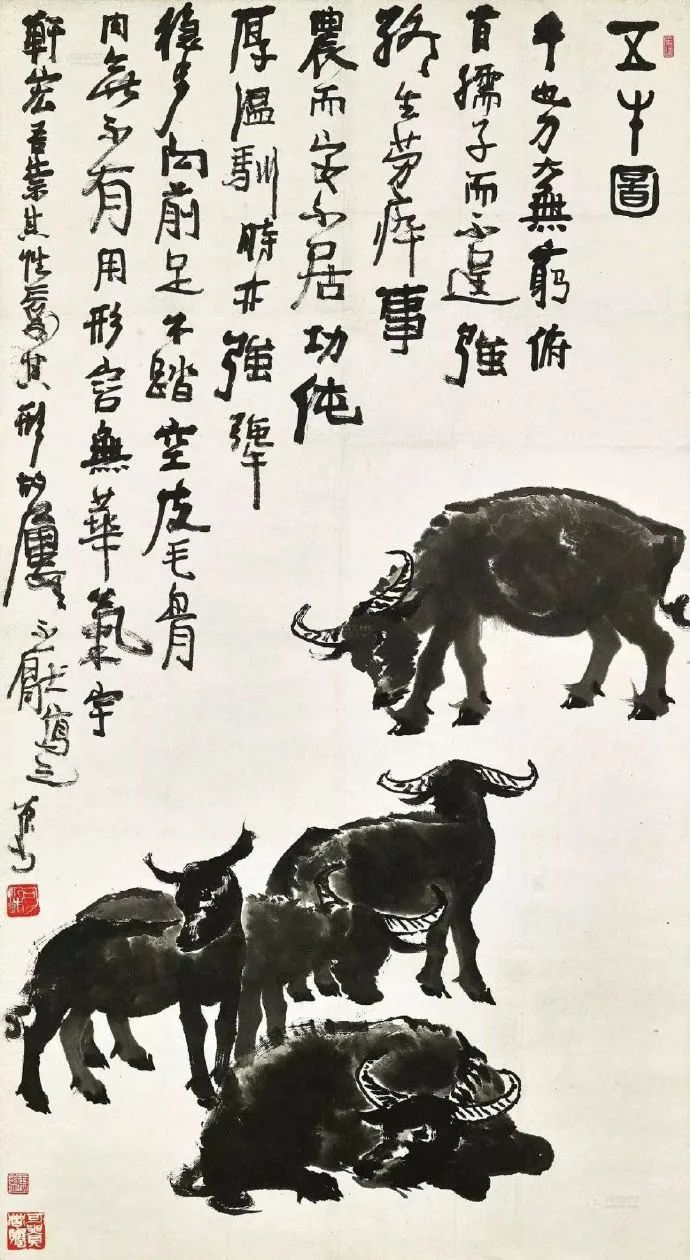 五牛图
牛也力大無窮俯
首孺子而不逞強
終生劳瘁事
農而安不居功純
厚温馴時亦強犟
穩步向前足不踏空皮毛骨
肉無不有用形容無華氣宇
軒宏吾崇其性愛其形故屢屢不厭寫之
可染